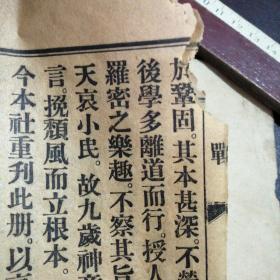 於鞏固。其本甚深。不勞
後學多離道而行。授人
羅密之樂趣。不察其旨
天哀小民。故九歲神童
言。挽頹風而立根本。
今本社重刊此册。以
戰